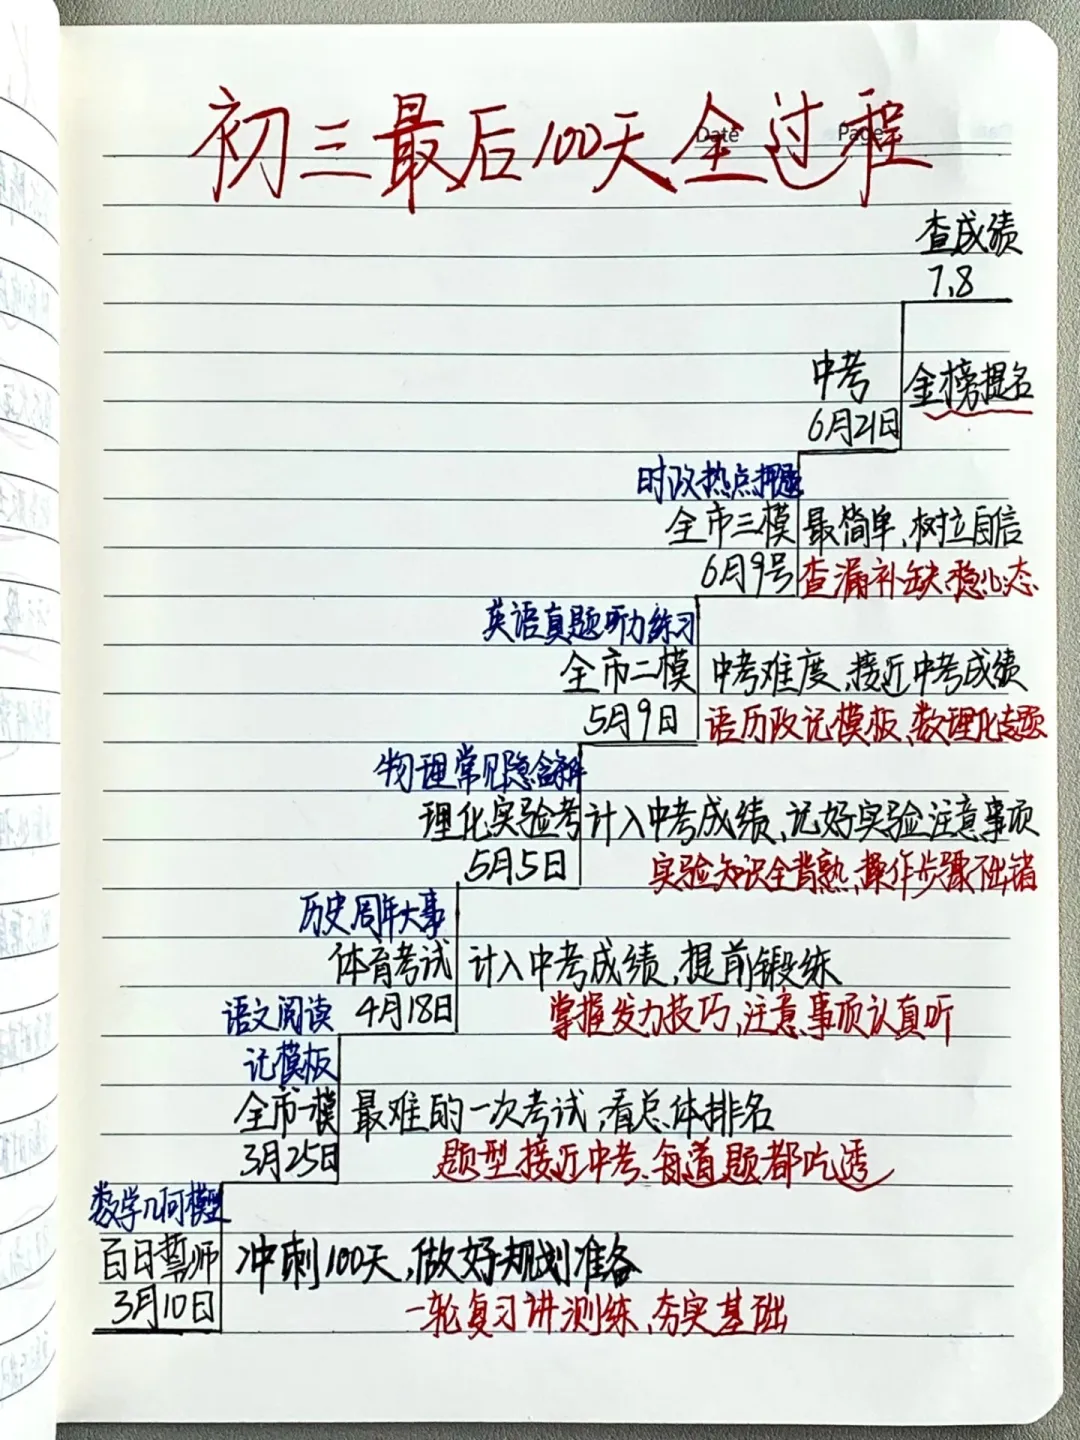 Date
Page
初三最后100天全过程
查成绩
7.8
中考
金榜提名
6月21日
时政热点押题
全市三模 最简单,树立自信
6月9号 查漏补缺.稳心态
英语真题听力练习
全市二模 中考难度,接近中考成绩
5月9日 语历政记模板,数理化专题
物理常见隐含条件
理化实验考 计入中考成绩,记好实验注意事项
5月5日 实验知识全背熟,操作步骤不出错
历史周年大事
体育考试 计入中考成绩,提前锻练
语文阅读 4月18日 掌握发力技巧,注意事项认真听
记模板
全市一模 最难的一次考试,看总体排名
3月25日 题型接近中考,每道题都吃透
数学几何模型
百日誓师 冲刺100天,做好规划准备
3月10日 一轮复习讲测练,夯实基础